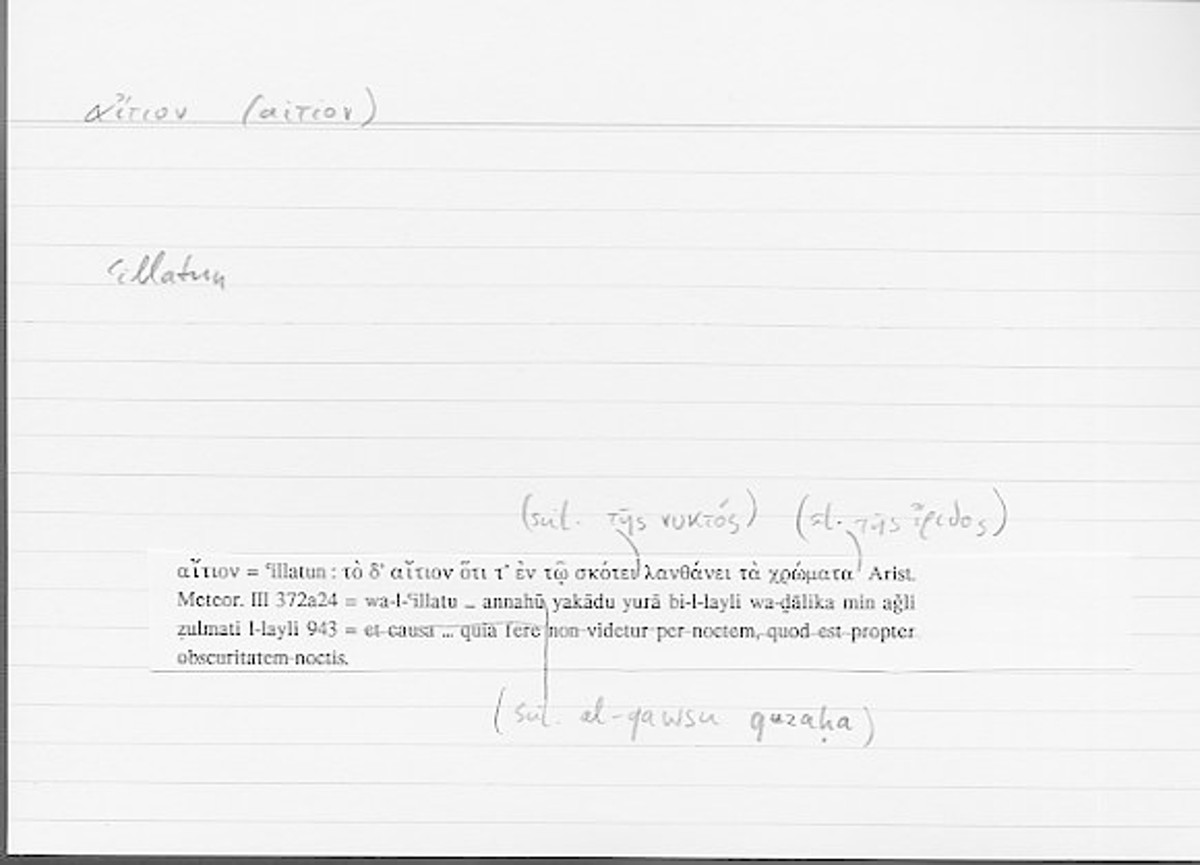 αἴτιον (αἰτίον)
ʿillatun
(scil. τῆς νυκτός) (scil. τῆς ἴριδος)
αἴτιον = ʿillatun : τὸ δ' αἴτιον ὅτι τ' ἐν τῷ σκότει λανθάνει τὰ χρώματα Arist.
Meteor. III 372a24 = wa-l-ʿillatu ... annahū yakādu yurā bi-l-layli wa-ḏālika min aǧli
ẓulmati l-layli 943 = et causa ... quia fere non videtur per noctem, quod est propter
obscuritatem noctis.
(scil. al-qawsu quzaḥa)